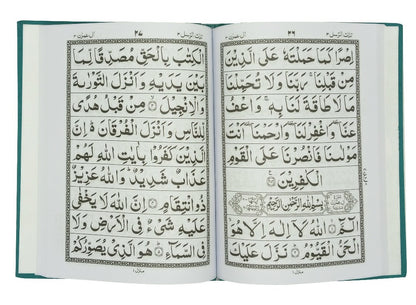 تلك الرسل ٣
اِصْرًا كَمَا حَمَلْتَهٗ عَلَى الَّذِيْنَ
مِنْ قَبْلِنَا ۚ رَبَّنَا وَلَا تُحَمِّلْنَا
مَا لَا طَاقَةَ لَنَا بِهٖ ۚ وَاعْفُ
عَنَّا ۥ وَاغْفِرْ لَنَا ۥ وَارْحَمْنَا ۥ اَنْتَ
مَوْلٰىنَا فَانْصُرْنَا عَلَى الْقَوْمِ
الْكٰفِرِيْنَ
بِسْمِ اللّٰهِ الرَّحْمٰنِ الرَّحِيْمِ
الٓمَّٓ اللّٰهُ لَاۤ اِلٰهَ اِلَّا هُوَ
الْحَىُّ الْقَيُّوْمُ نَزَّلَ عَلَيْكَ
تلك الرسل ٣
ال عمرٰن ٣
الْكِتٰبَ بِالْحَقِّ مُصَدِّقًا لِّمَا
بَيْنَ يَدَيْهِ وَاَنْزَلَ التَّوْرٰىةَ
وَالْاِنْجِيْلَ مِنْ قَبْلُ هُدًى
لِّلنَّاسِ وَاَنْزَلَ الْفُرْقَانَ ۥ اِنَّ
الَّذِيْنَ كَفَرُوْا بِاٰيٰتِ اللّٰهِ لَهُمْ
عَذَابٌ شَدِيْدٌ ۥ وَاللّٰهُ عَزِيْزٌ
ذُو انْتِقَامٍ اِنَّ اللّٰهَ لَا يَخْفٰى
عَلَيْهِ شَىْءٌ فِى الْاَرْضِ وَلَا
فِى السَّمَآءِ هُوَ الَّذِىْ يُصَوِّرُكُمْ